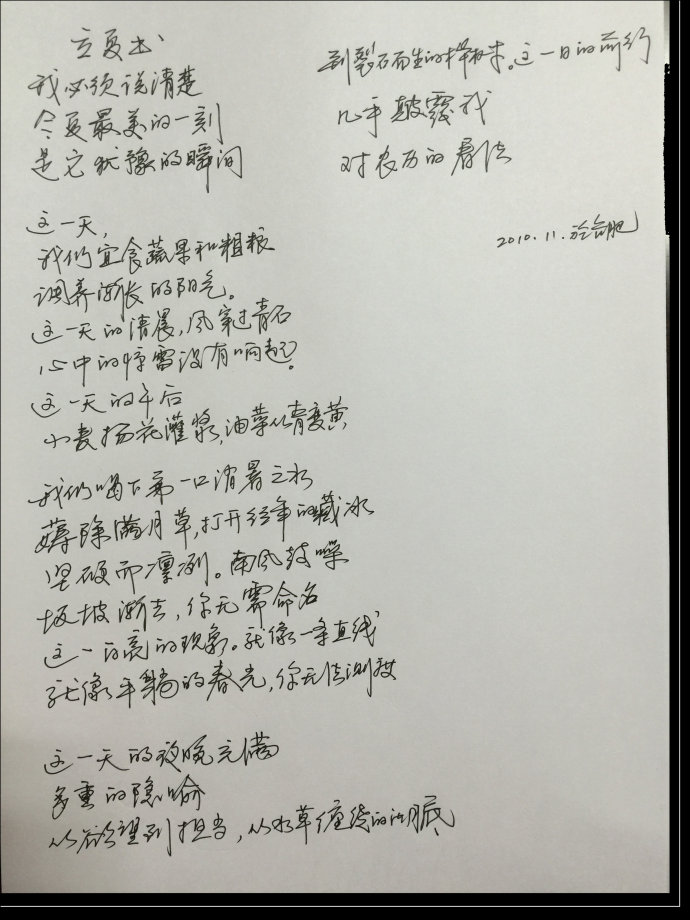 立夏书
我必须说清楚
今夏最美的一刻
是它犹豫的瞬间
这一天，
我们宜食蔬果和粗粮
调养渐长的阳气。
这一天的清晨，风穿过青石
心中的惊雷没有响起。
这一天的午后
小麦扬花灌浆，油菜从青变黄
我们喝下第一口消暑之水
薅除满月草，打开经年的藏冰
坚硬而凛冽。南风鼓噪
坂坡渐去，你无需命名
这一的现象。就像一条直线
就像平躺的春光，你无法测按
这一天的夜晚充满
多重的隐喻
从欲望到担当，从水草缠绕的河底
到裂石而生的榉树。这一日的前行
几乎颠覆我
对农历的看法
2010.11.于合肥